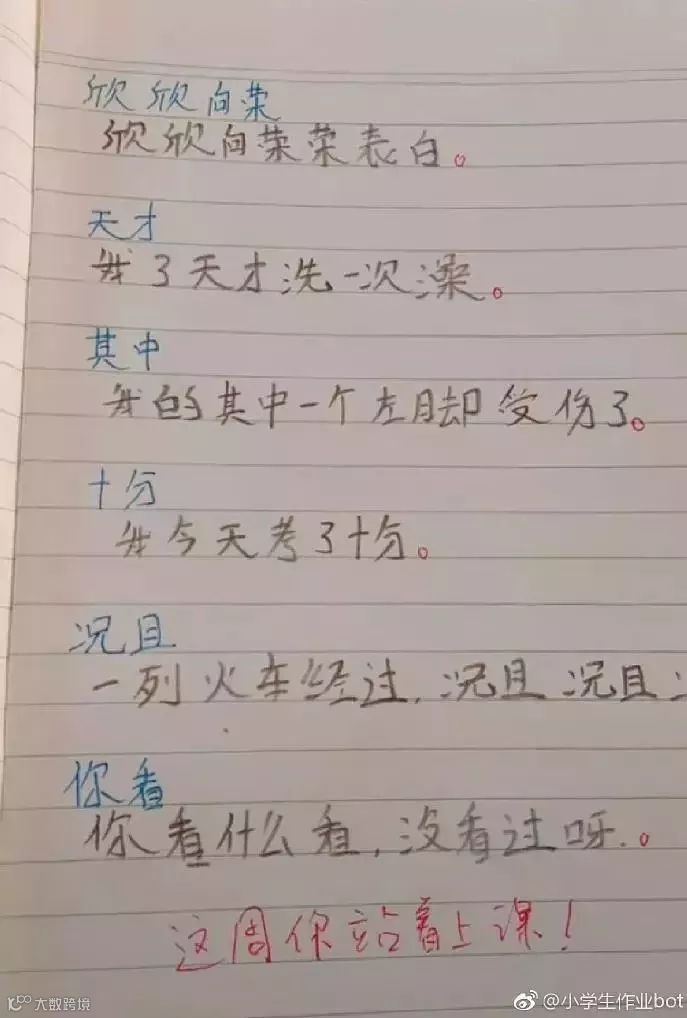 欣欣向荣
欣欣向荣荣表白。
天才
我3天才洗一次澡。
其中
我的其中一个左脚受伤了。
十分
我今天考了十分。
况且
一列火车经过,况且况且
你看
你看什么看,没看过呀.。
这周你站着上课!
10100 大数跨境
@小学生作业bot